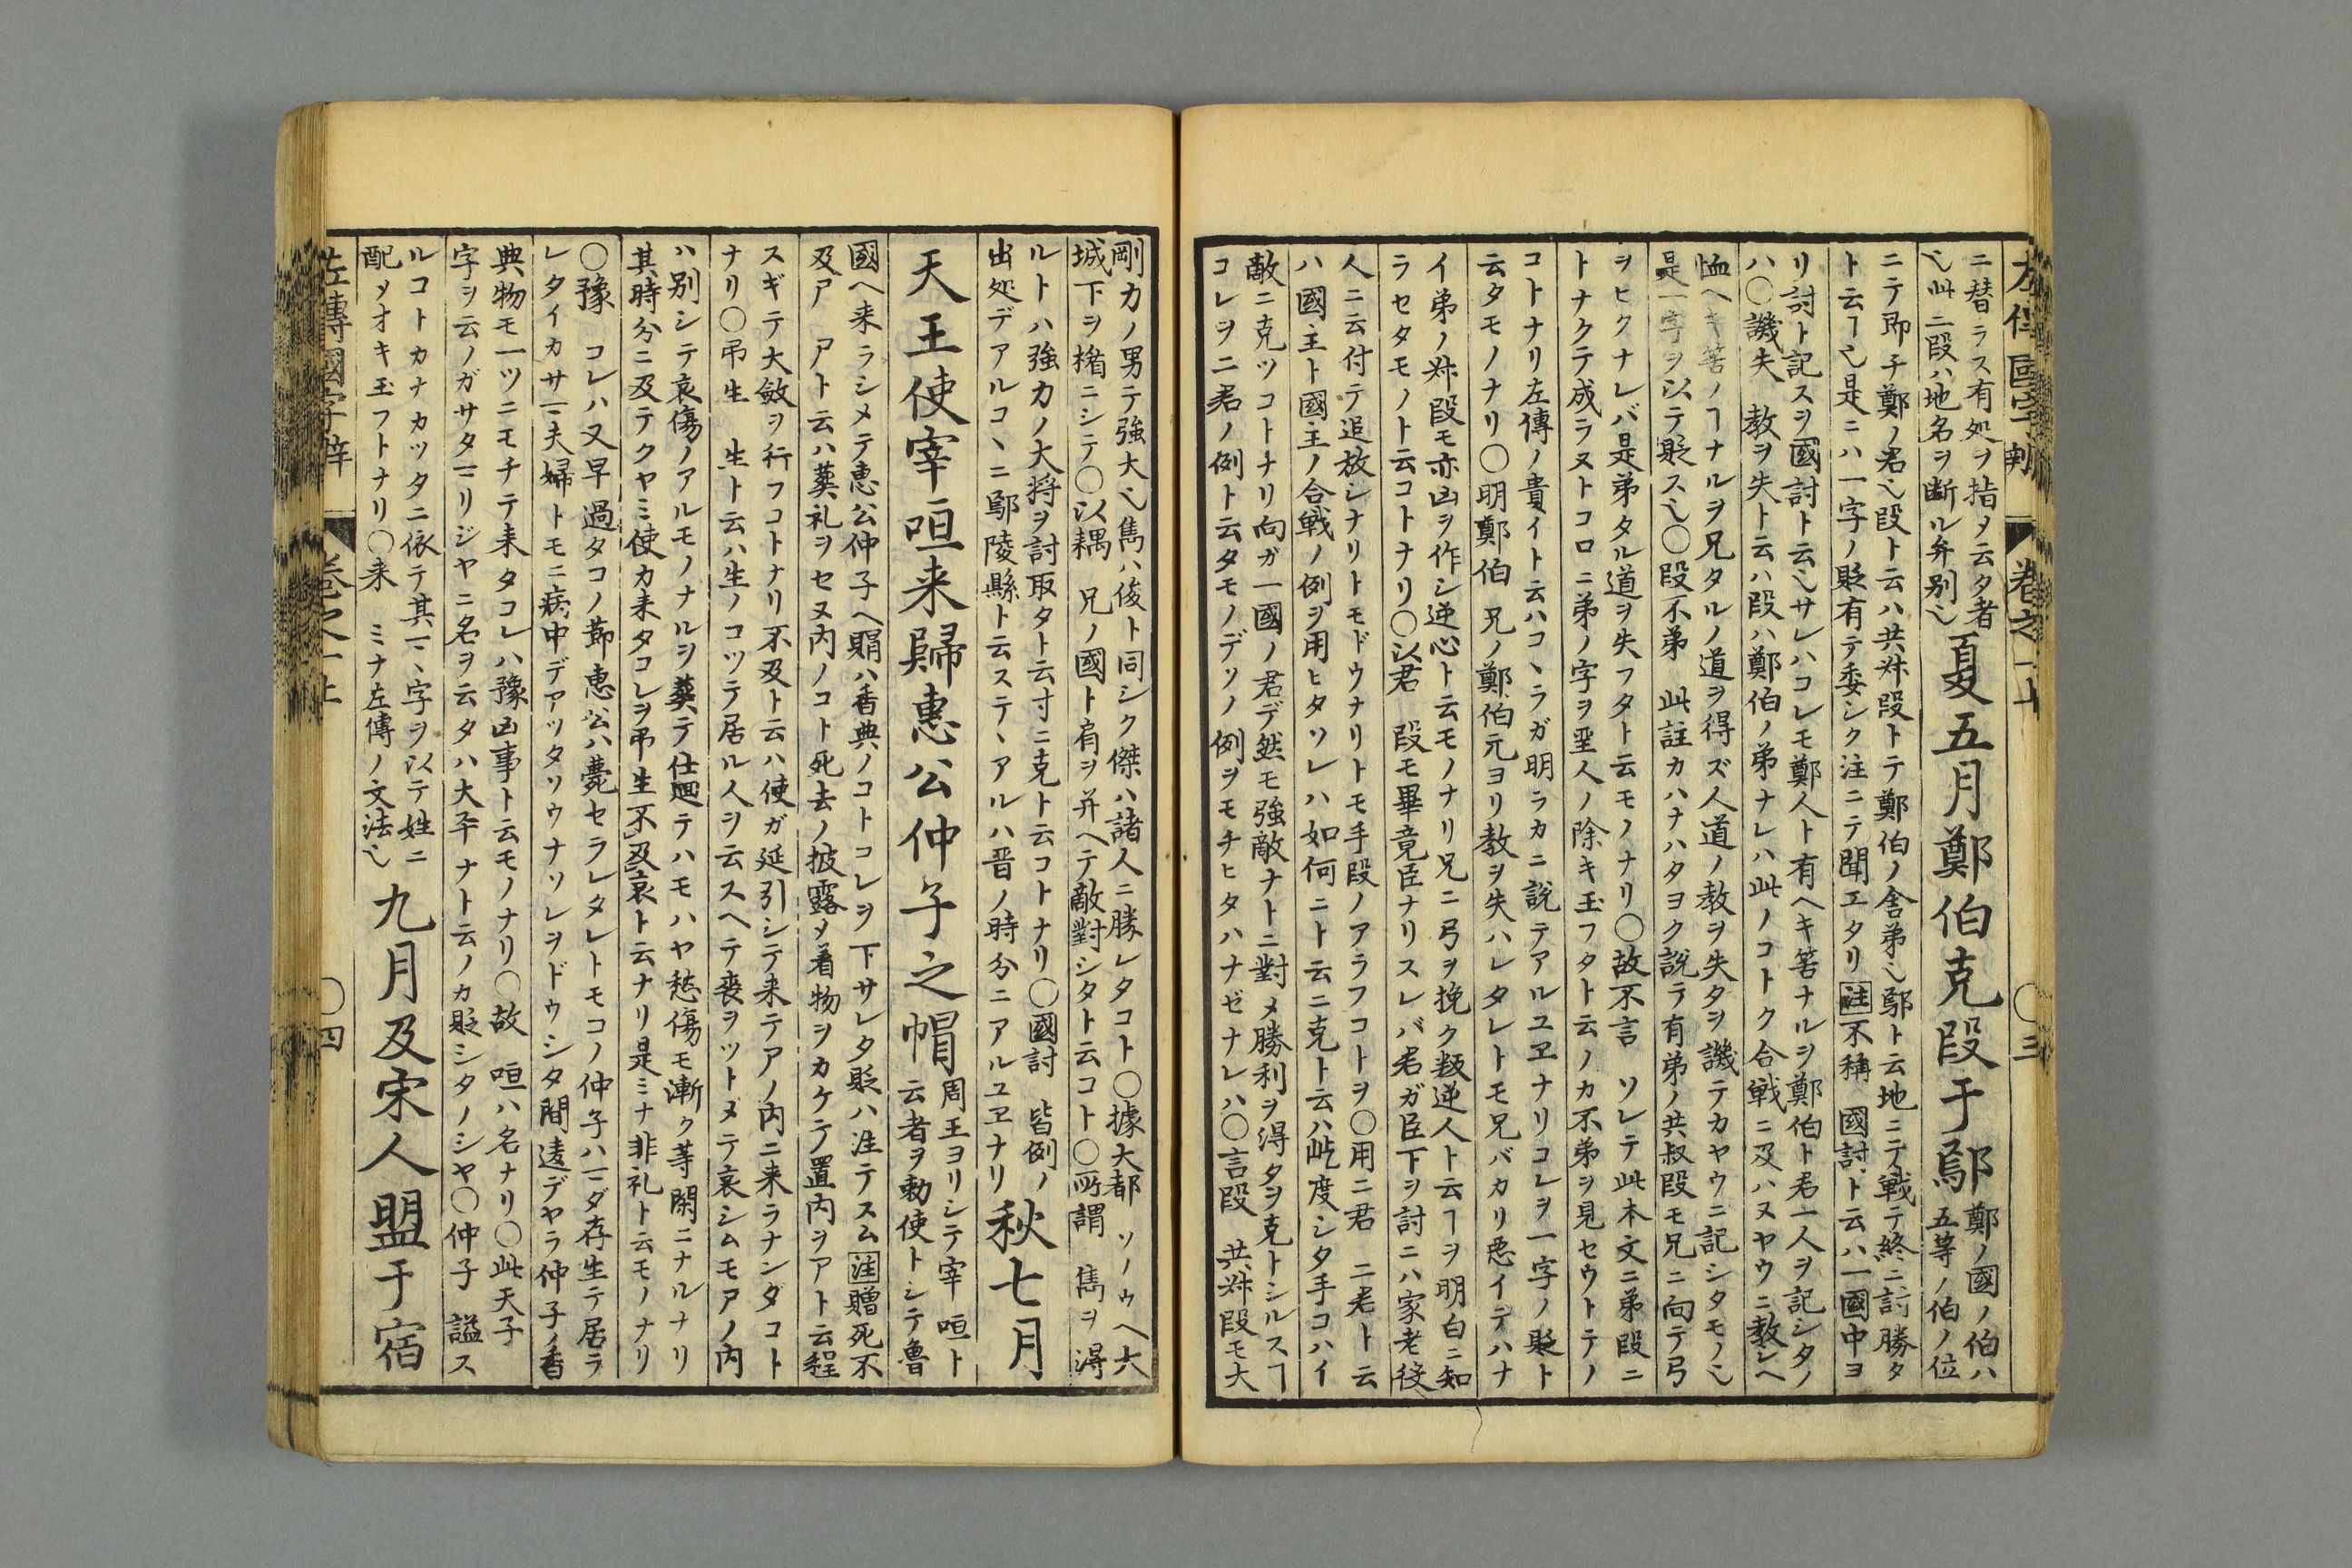 左傳國字辨 卷之一上 〇三
ニ替ラス有処ヲ指〆云タ者
也此ニ段ハ地名ヲ断ル弁別也
夏五月鄭伯克段于鄢
鄭ノ國ノ伯ハ
五等ノ伯ノ位
ニテ即チ鄭ノ君也段ト云ハ共叔段トテ鄭伯ノ舎弟也鄢ト云地ニテ戦テ終ニ討勝タ
トヿ也是ニハ一字ノ貶有テ委シク注ニテ聞エタリ注不稱 國討ト云ハ一國中ヨ
リ討ト記スヲ國討ト云也サレハコレモ鄭人ト有ヘキ筈ナルヲ鄭伯ト君一人ヲ記シタノ
ハ〇譏失 教ヲ失ト云ハ段ハ鄭伯ノ弟ナレハ此ノコトク合戦ニ及ハヌヤウニ教レヘ
恤ヘキ筈ノヿナルヲ兄タルノ道ヲ得ズ人道ノ教ヲ失タヲ譏テカヤウニ記シタモノ也
是一字ヲ以テ貶ス也〇段不弟 此註カハナハタヨク説テ有弟ノ共叔段モ兄ニ向テ弓
ヲヒクナレバ是弟タル道ヲ失フタト云モノナリ〇故不言 ソレテ此本文ニ弟段ニ
トナクテ成ラヌトコロニ弟ノ字ヲ聖人ノ除キ玉フタト云ノカ不弟ヲ見セウトテノ
コトナリ左傳ノ貴イト云ハコヽラガ明ラカニ説テアルユヱナリコレヲ一字ノ貶ト
云タモノナリ〇明鄭伯 兄ノ鄭伯元ヨリ教ヲ失ハレタレトモ兄バカリ悪イデハナ
イ弟ノ叔段モ亦凶ヲ作シ逆心ト云モノナリ兄ニ弓ヲ挽ク叛逆人ト云ヿヲ明白ニ知
ラセタモノト云コトナリ〇以君 段モ畢竟臣ナリスレバ君ガ臣下ヲ討ニハ家老役
人ニ云付テ追放シナリトモドウナリトモ手段ノアラフコトヲ〇用二君 二君ト云
ハ國主ト國主ノ合戦ノ例ヲ用ヒタソレハ如何ニト云ニ克ト云ハ屹度シタ手コハイ
敵ニ克ツコトナリ向ガ一國ノ君デ然モ強敵ナトニ對〆勝利ヲ得タヲ克トシルスヿ
コレヲ二君ノ例ト云タモノデソノ例ヲモチヒタハナゼナレハ〇言段 共叔段モ大
剛カノ男テ強大也雋ハ俊ト同シク傑ハ諸人ニ勝レタコト〇據大都 ソノウヘ大
城下ヲ楯ニシテ〇以耦 兄ノ國ト肩ヲ并ヘテ敵對シタト云コト〇所謂 雋ヲ得
ルトハ強カノ大将ヲ討取タト云寸ニ克ト云コトナリ〇國討 皆例ノ
出処デアルコヽニ鄢陵縣ト云ステヽアルハ晋ノ時分ニアルユヱナリ
秋七月
天王使宰咺来歸惠公仲子之帽
周王ヨリシテ宰咺ト
云者ヲ勅使トシテ魯
國ヘ来ラシメテ恵公仲子ヘ賵ハ香典ノコトコレヲ下サレタ貶ハ注テスム注贈死不
及尸 尸ト云ハ葬礼ヲセヌ内ノコト死去ノ披露〆着物ヲカケテ置内ヲアト云程
スギテ大斂ヲ行フコトナリ不及ト云ハ使ガ延引シテ来テアノ内ニ来ラナンダコト
ナリ〇吊生 生ト云ハ生ノコツテ居ル人ヲ云スヘテ喪ヲツトメテ哀シムモアノ内
ハ別シテ哀傷ノアルモノナルヲ葬テ仕廻テハモハヤ愁傷モ漸ク等閑ニナルナリ
其時分ニ及テクヤミ使カ来タコレヲ吊生不及哀ト云ナリ是ミナ非礼ト云モノナリ
〇豫 コレハ又早過タコノ莭惠公ハ薨セラレタレトモコノ仲子ハマダ存生テ居ラ
レタイカサマ夫婦トモニ病中デアツタソウナソレヲドウシタ間違デヤラ仲子ノ香
典物モ一ツニモチテ来タコレハ豫凶事ト云モノナリ〇故 咺ハ名ナリ〇此天子
字ヲ云ノガサタマリジヤニ名ヲ云タハ大卒ナト云ノカ貶シタノシヤ〇仲子 諡ス
ルコトカナカツタニ依テ其マヽ字ヲ以テ姓ニ
配〆オキ玉フトナリ〇来 ミナ左傳ノ文法也
九月及宋人盟于宿
左傳國字辨 卷之一上 〇四